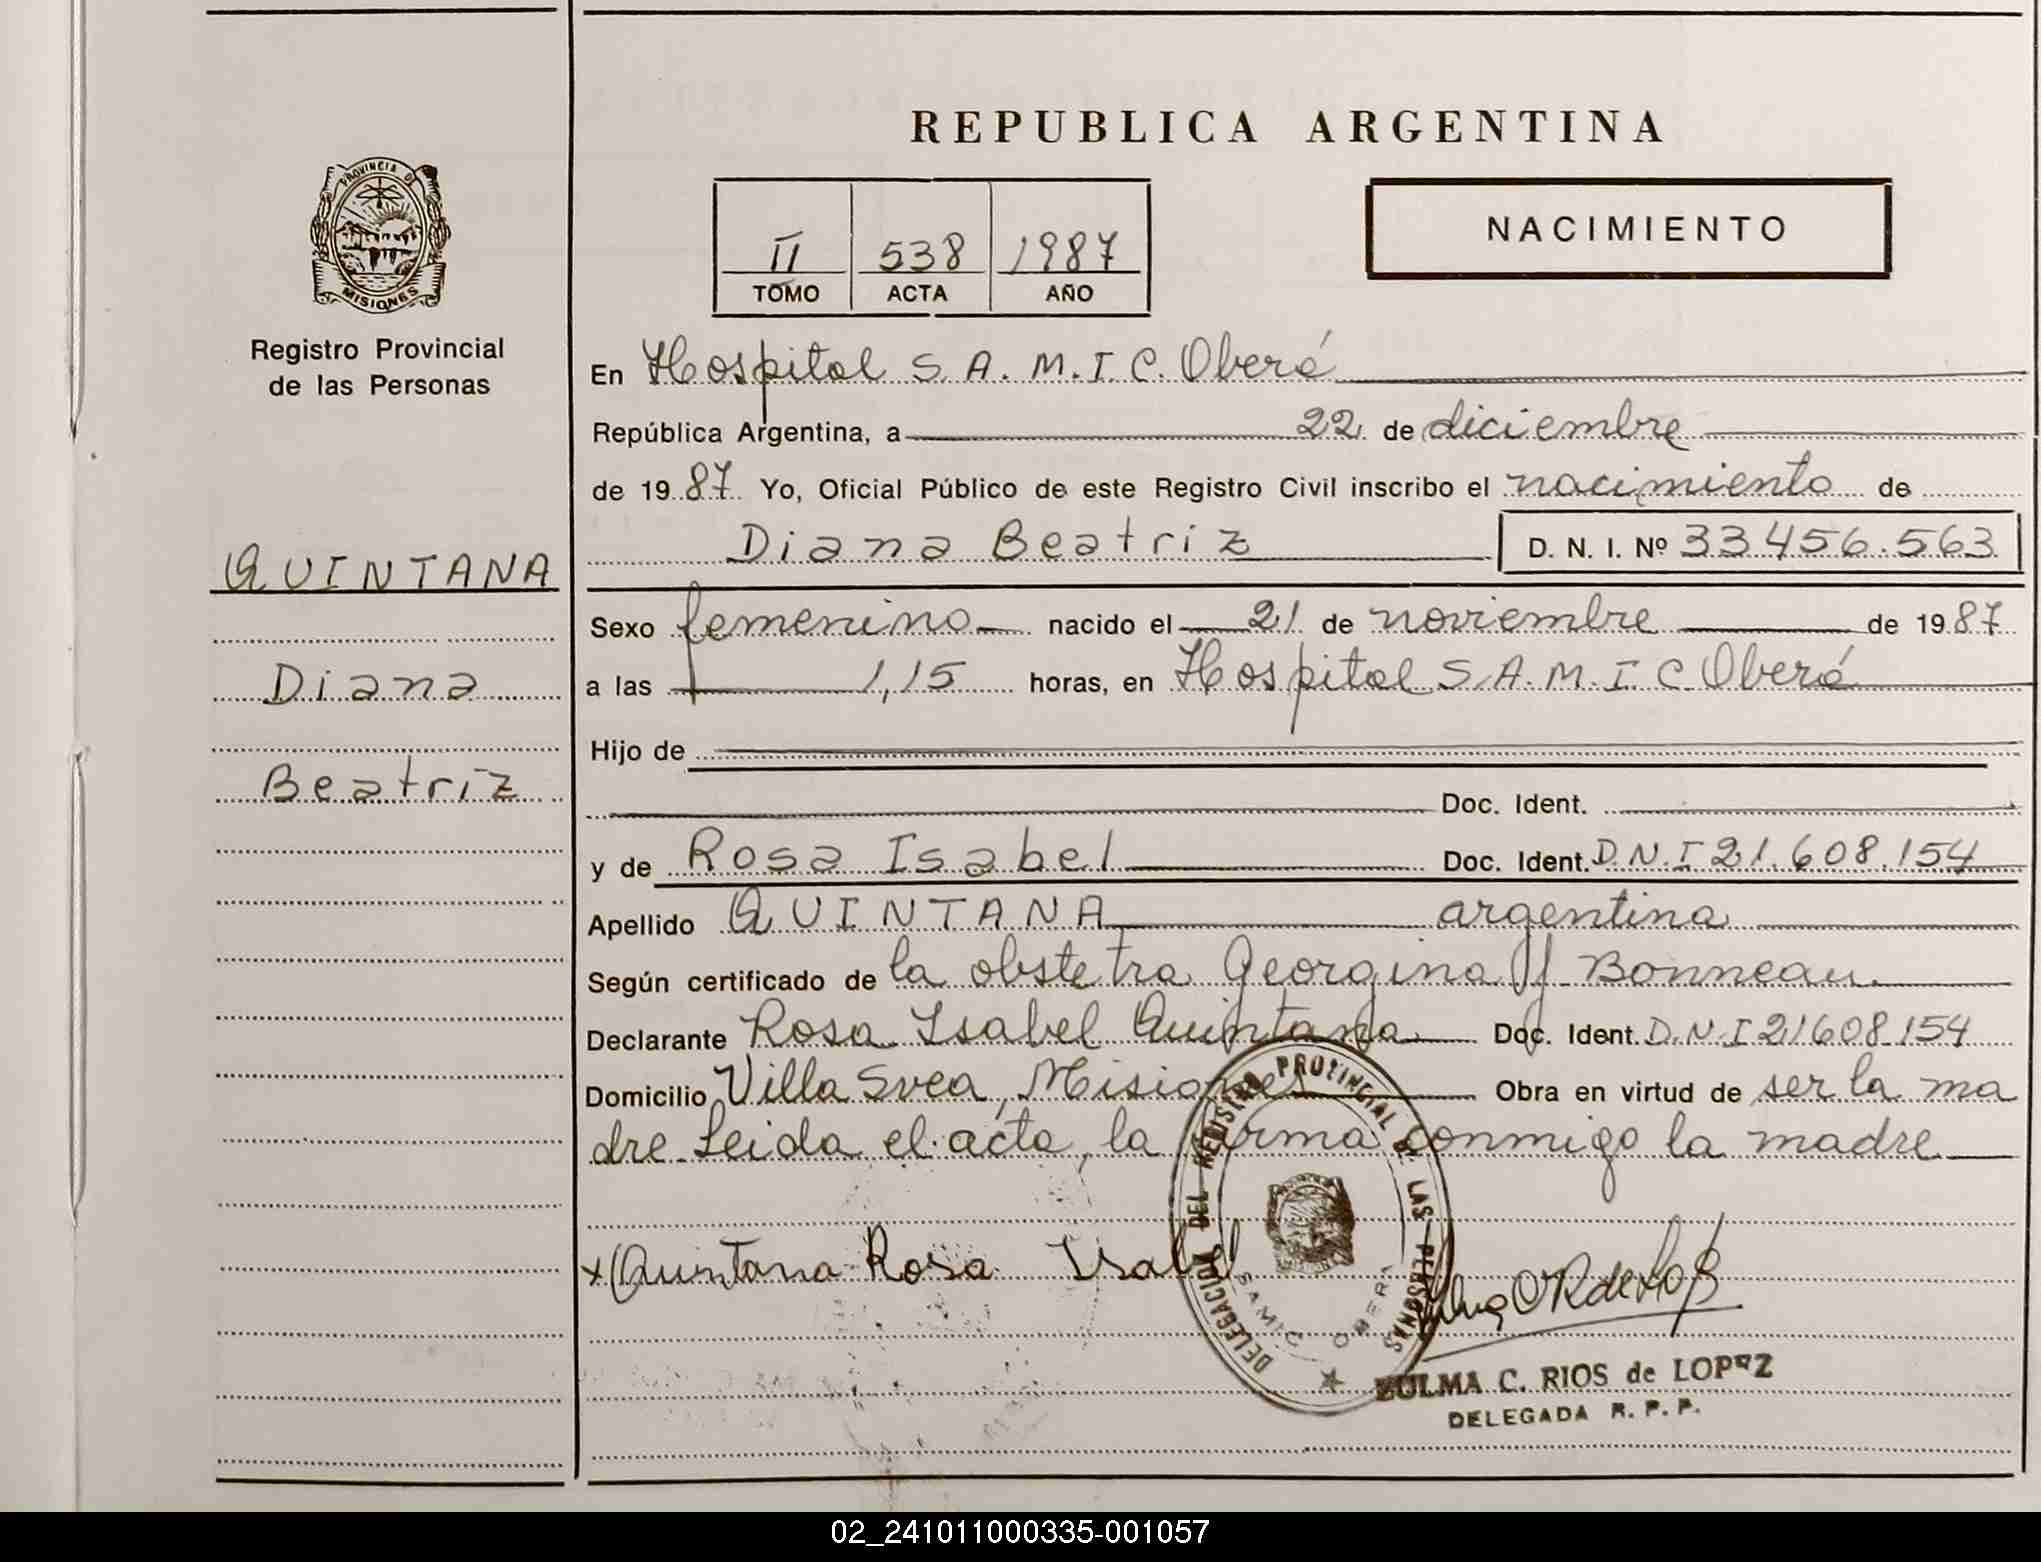 REPUBLICA ARGENTINA
PROVINCIA DE
MISIONES
Registro Provincial
de las Personas
QUINTANA
Diana
Beatriz
II 538 1987
TOMO ACTA AÑO
NACIMIENTO
En Hospital S.A.M.I.C. Oberá
República Argentina, a 22 de diciembre
de 1987 Yo, Oficial Público de este Registro Civil inscribo el nacimiento de
Diana Beatriz D. N. I. Nº 33.456.563
Sexo femenino nacido el 21 de noviembre de 1987
a las 1,15 horas, en Hospital S.A.M.I.C Oberá
Hijo de
Doc. Ident.
y de Rosa Isabel Doc. Ident. D.N.I 21.608.154
Apellido QUINTANA argentina
Según certificado de la obstetra Georgina Bonneau
Declarante Rosa Isabel Quintana Doc. Ident. D.N.I 21608.154
Domicilio Villa Svea, Misiones Obra en virtud de ser la ma
dre. Leida el acta, la firma conmigo la madre
x Quintana Rosa Isabel
DELEGACION DEL REGISTRO PROVINCIAL DE LAS PERSONAS
SAMIC OBERA
ZULMA C. RIOS de LOPEZ
DELEGADA R. P. P.
02_241011000335-001057